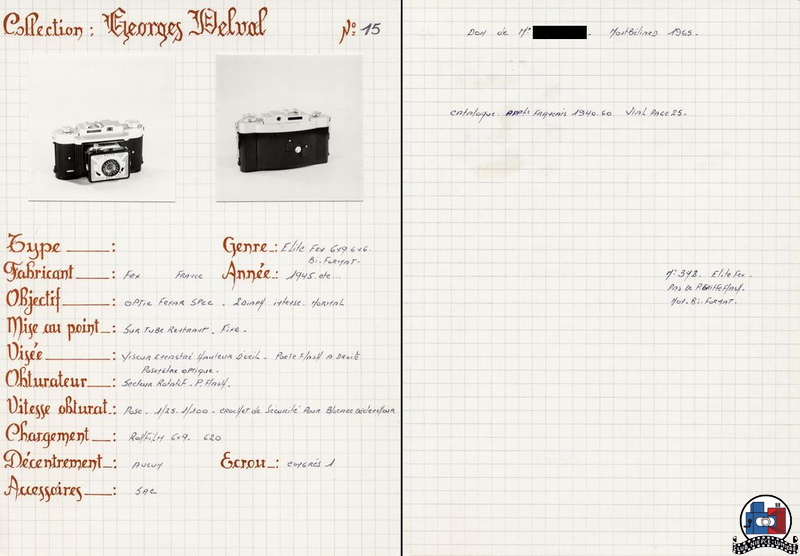 Collection : Georges Delval
N° 15
Type :
Genre : Elite Fex 6x9.6x6.
Bi. Format.
Fabricant : Fex France
Année : 1945. etc...
Objectif : Optic Fexar Spec . 2 Diaph interne. Normal
Mise au point : Sur tube Rentrant . Fixe.
Visée : Viseur encastré Hauteur D'oeil . Porte Flash A Droite
optique.
Obturateur : Secteur Rotatif . P. Flash.
Vitesse obturat. : Pose . 1/25. 1/100 . crochet de Sécurité Pour Blocage Déclencheur
Chargement : Rollfilm 6x9. 620
Décentrement : Aucun
Ecrou : congrès 1
Accessoires : Sac
Don de Mr . Montbéliard 1965.
Catalogue. App. Français 1940.60. Vial Page 25.
N° 342. Elite Fex.
Pas de P. Flash.
Bi. Format.